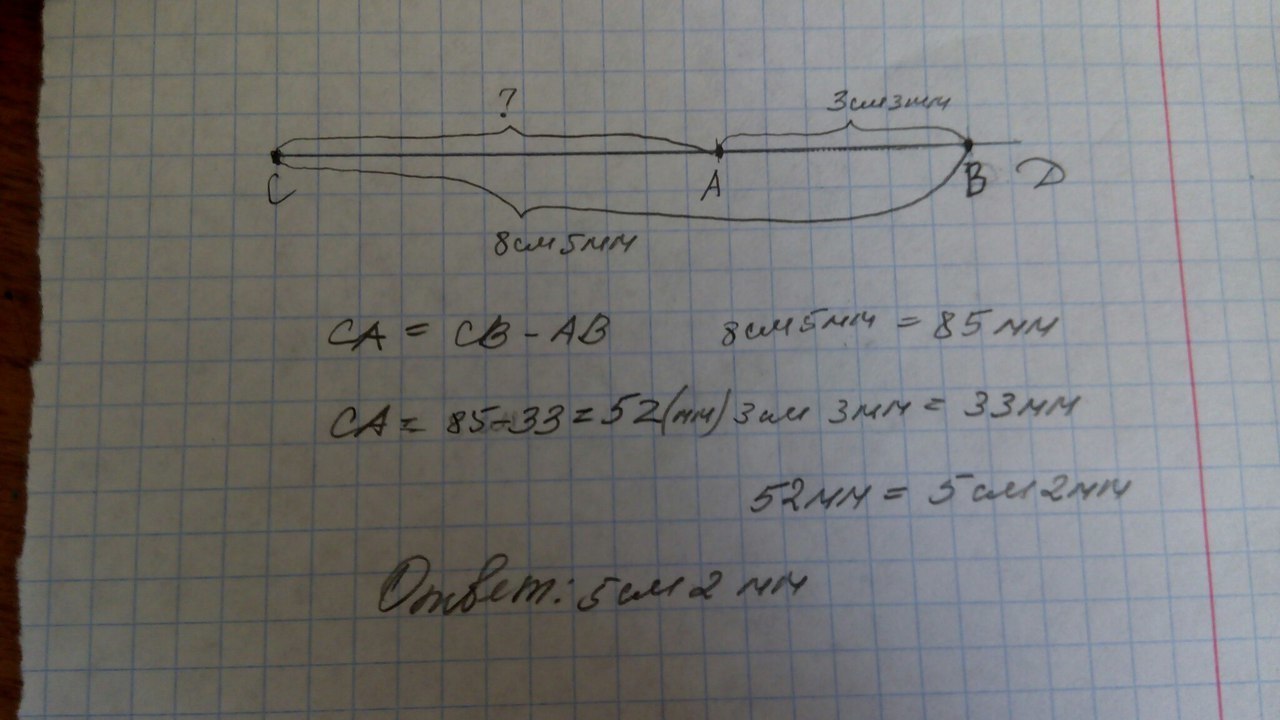 ? 3см3мм
C A B D
8см 5мм
CA = CB - AB 8см 5мм = 85 мм
CA = 85-33 = 52(мм) 3см 3мм = 33мм
52мм = 5см 2мм
Ответ: 5см 2 мм